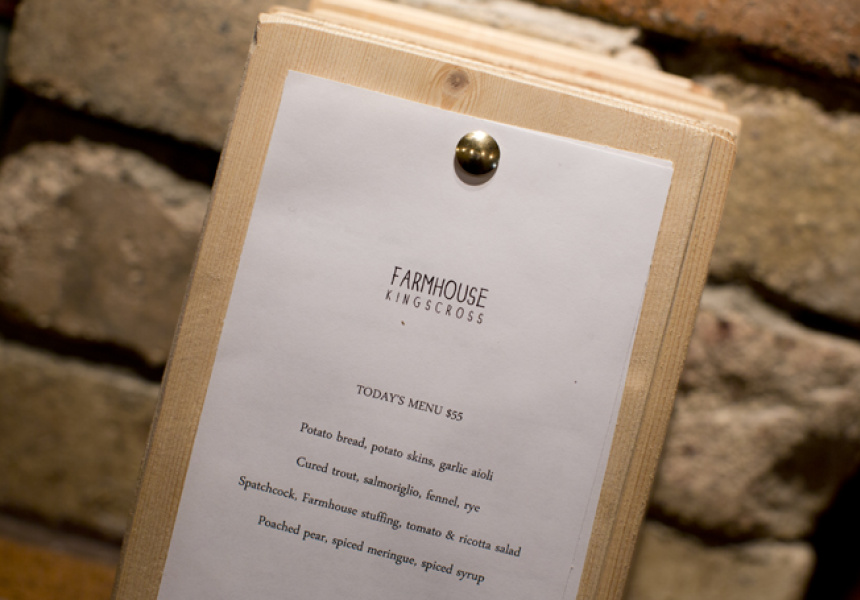 FARMHOUSE
KINGSCROSS
TODAY'S MENU $55
Potato bread, potato skins, garlic aioli
Cured trout, salmoriglio, fennel, rye
Spatchcock, Farmhouse stuffing, tomato & ricotta salad
Poached pear, spiced meringue, spiced syrup